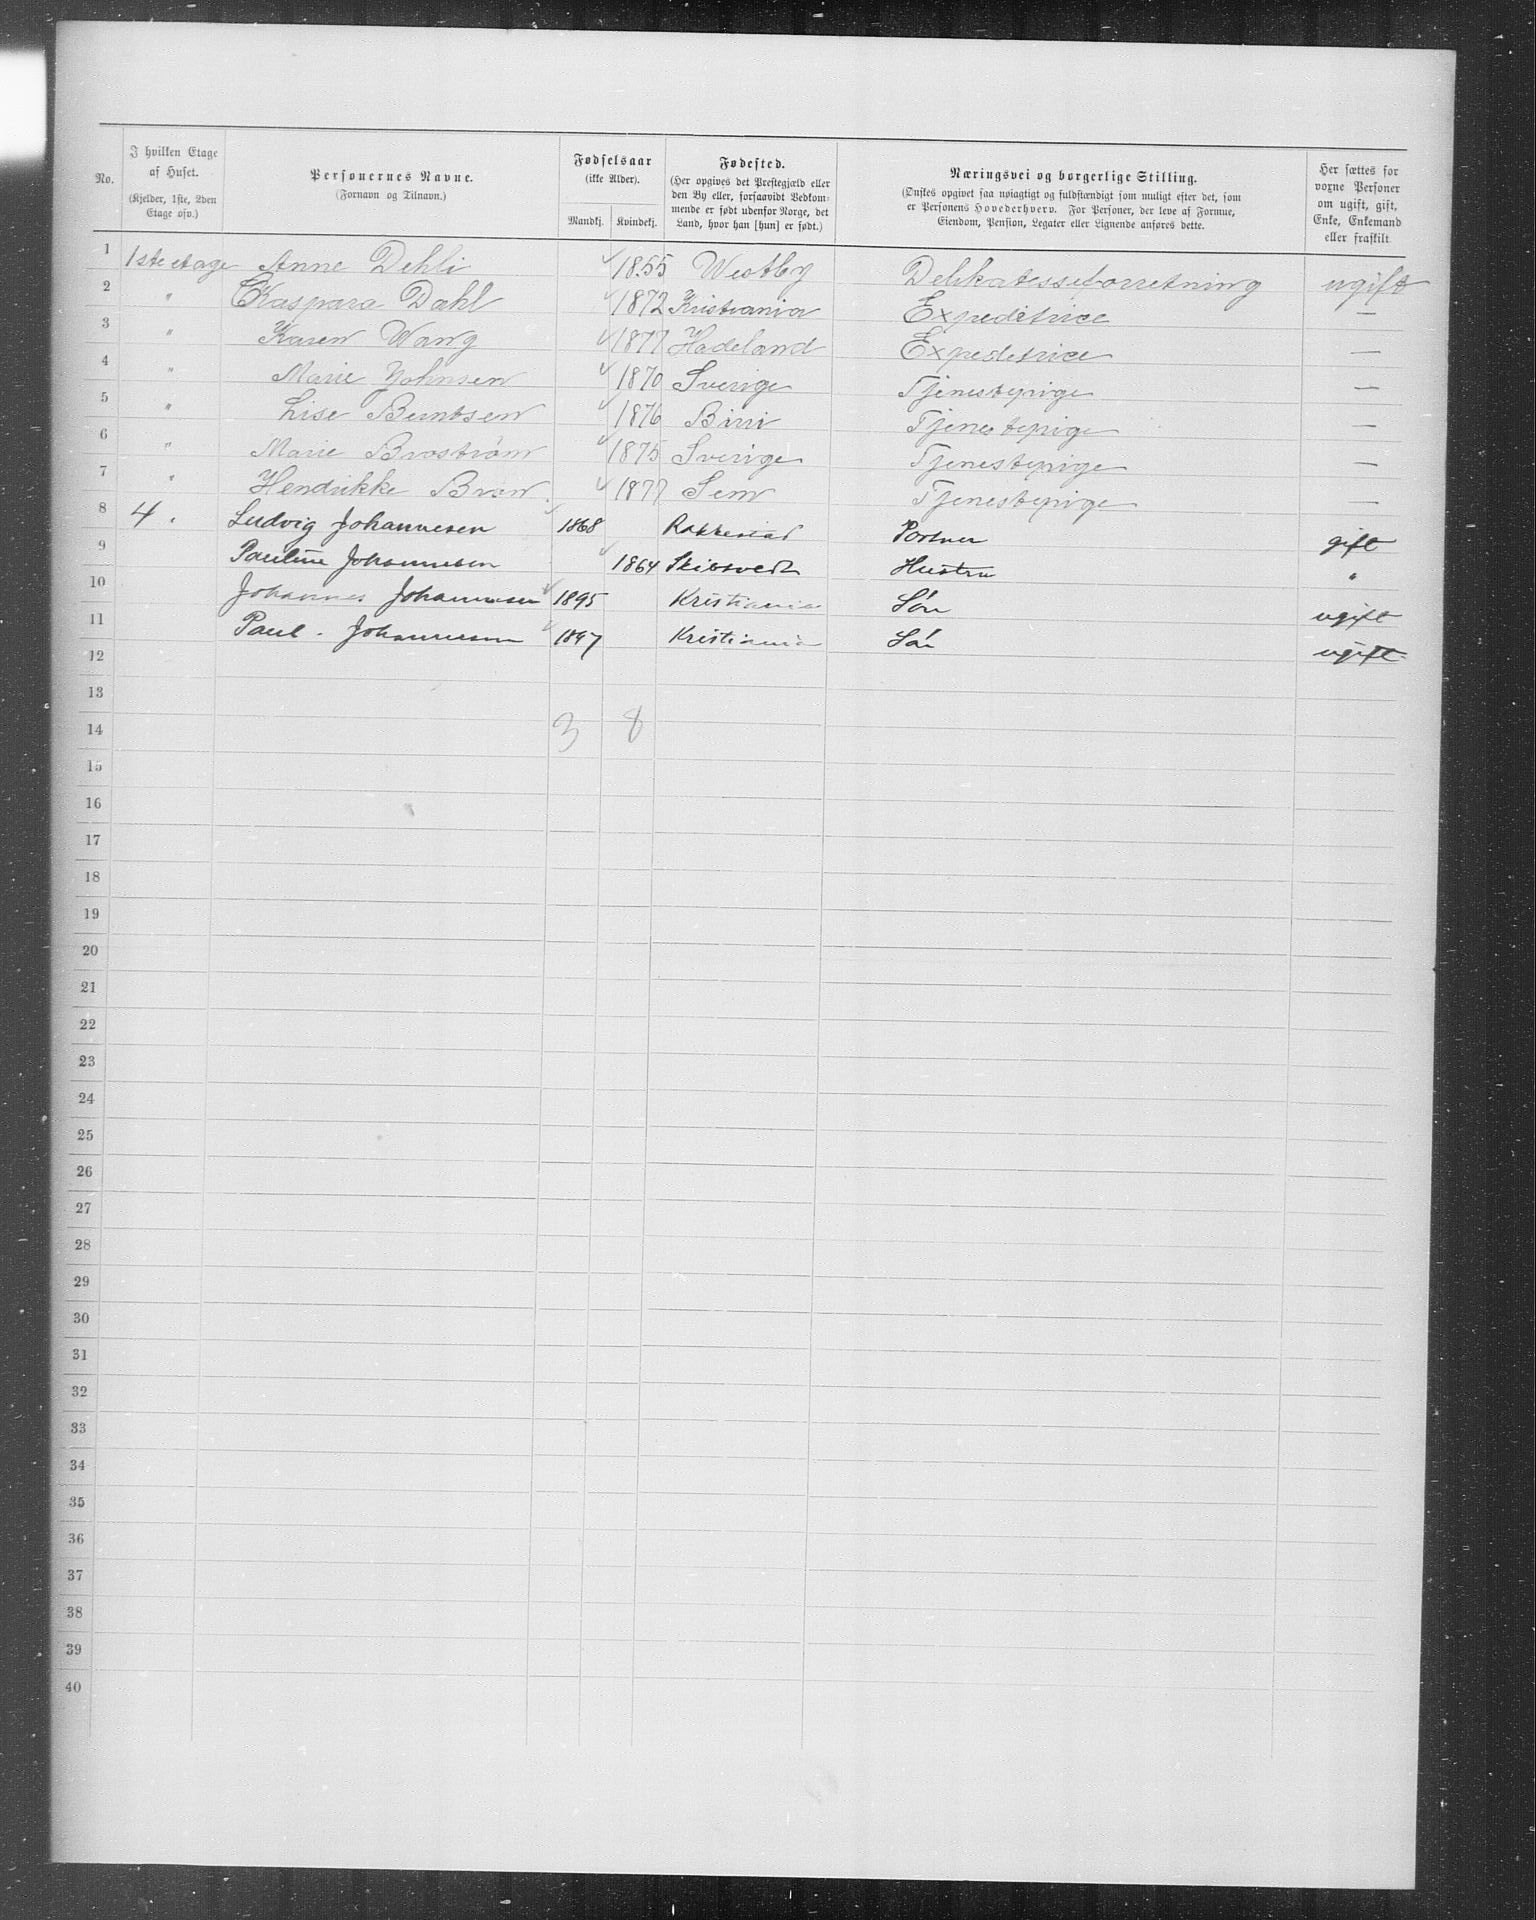 No.
I hvilken Etage af Huset. (Kjelder, 1ste, 2den Etage osv.)
Personernes Navne. (Fornavn og Tilnavn.)
Fødselsaar (ikke Alder). Mandkj. Kvindekj.
Fødested. (Her opgives det Prestegjæld eller den By eller, forsaavidt Vedkommende er født udenfor Norge, det Land, hvor han [hun] er født.)
Næringsvei og borgerlige Stilling. (Ønskes opgivet saa nøiagtigt og fuldstændigt som muligt efter det, som er Personens Hovederhverv. For Personer, der leve af Formue, Eiendom, Pension, Legater eller Lignende anføres dette.)
Her sættes for voxne Personer om ugift, gift, Enke, Enkemand eller fraskilt
1 1ste etage Anne Dehli 1855 Westby Delikatesseforretning ugift
2 " Kaspara Dahl 1872 Kristiania Expeditrice —
3 " Karen Wang 1877 Hadeland Expeditrice —
4 " Marie Johnsen 1870 Sverige Tjenestepige —
5 " Lise Berntsen 1876 Birri Tjenestepige —
6 " Marie Broström 1875 Sverige Tjenestepige —
7 " Hendrikke Brun 1877 Sem Tjenestepige —
8 4 . Ludvig Johannesen 1868 Rakkestad Portner gift
9 Pauline Johannesen 1864 Skibtvedt Hustru "
10 Johannes Johannesen 1895 Kristiania Søn ugift
11 Paul Johannesen 1897 Kristiania Søn ugift
12
13
14 3 8
15
16
17
18
19
20
21
22
23
24
25
26
27
28
29
30
31
32
33
34
35
36
37
38
39
40